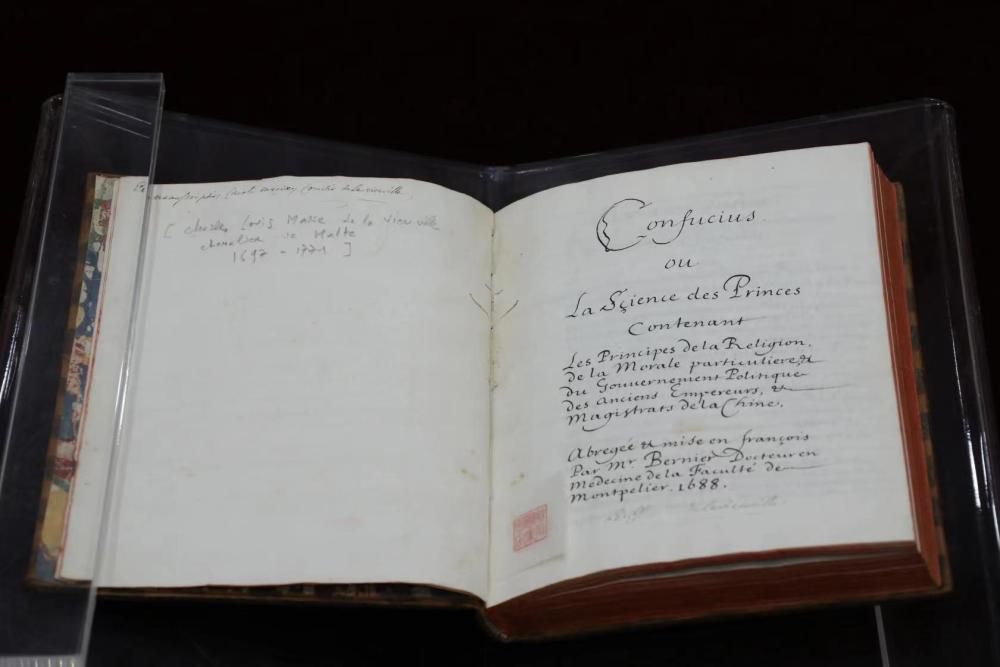 [ Charles Louis Marie de la Vieuville
chevalier de Malte
1697 - 1771 ]
Confucius
ou
La Sçience des Princes
Contenant
Les Principes de la Religion,
de la Morale particuliere, &
du Gouvernement Politique
des Anciens Empereurs, &
Magistrats de la Chine.
Abregée & mise en françois
Par Mr. Bernier Docteur en
Medecine de la Faculté de
Montpelier. 1688.